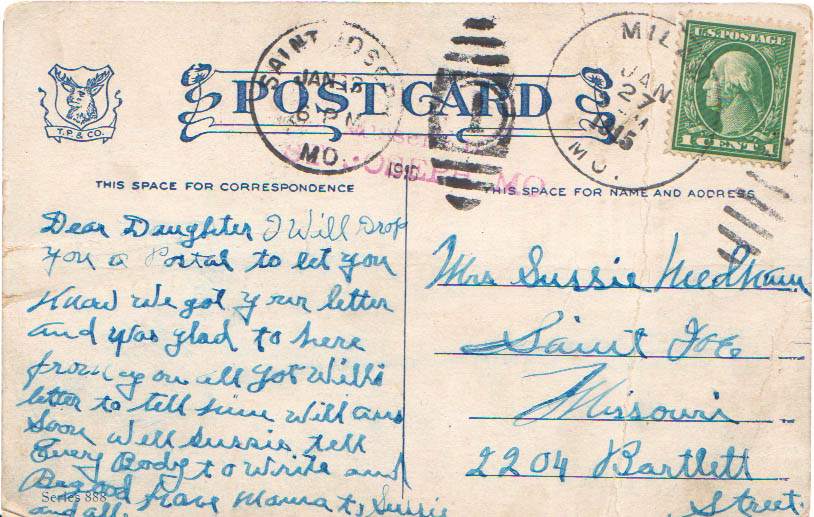 SAINT JOSEPH
JAN 28
6 PM
MO.
1915
MIL
JAN
27
M
1915
MO.
U.S. POSTAGE
1 CENT 1
T.P. & CO.
POST CARD
ST. JOSEPH, MO.
THIS SPACE FOR CORRESPONDENCE
THIS SPACE FOR NAME AND ADDRESS
Dear Daughter I Will Drop
you a Postal to let you
Know we got your letter
and was glad to here
from you all got Will's
letter to tell him will ans
Soon Well Sussie tell
Every Body to write and
Be good from Mama to Sussie
and all.
Series 888
Mrs Sussie Nedham
Saint Joe
Missouri
2204 Bartlett
Street.